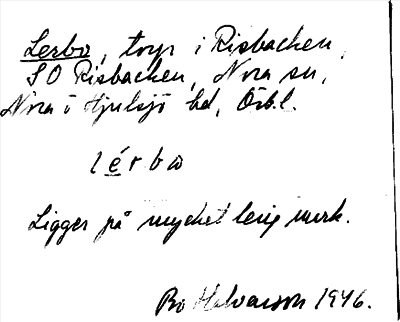 Lerbo, torp i Risbacken,
SO Risbacken, Nora sn,
Nora o Hjulsjö bd, Örb.l.
lérbo
Ligger på mycket lerig mark.
Bo Halvarson 1946.